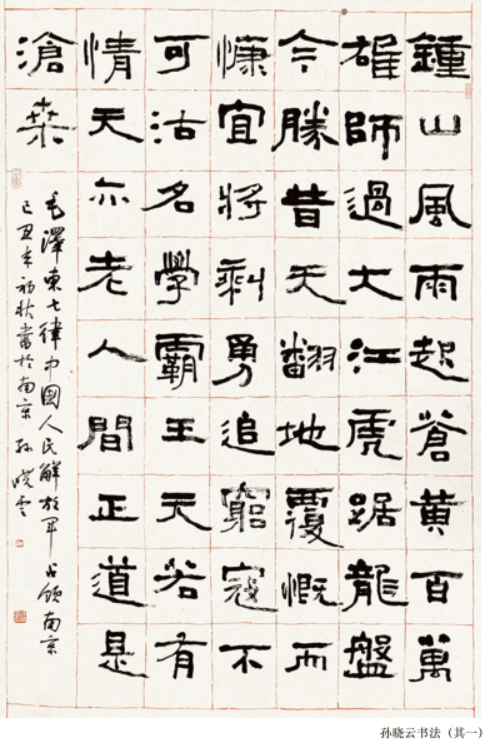 鍾山風雨起蒼黃百萬
雄師過大江虎踞龍盤
今勝昔天翻地覆慨而
慷宜將剩勇追窮寇不
可沽名學霸王天若有
情天亦老人間正道是
滄桑
毛澤東七律中國人民解放軍占領南京
己丑年初秋書於南京 孫曉雲
孙晓云书法（其一）